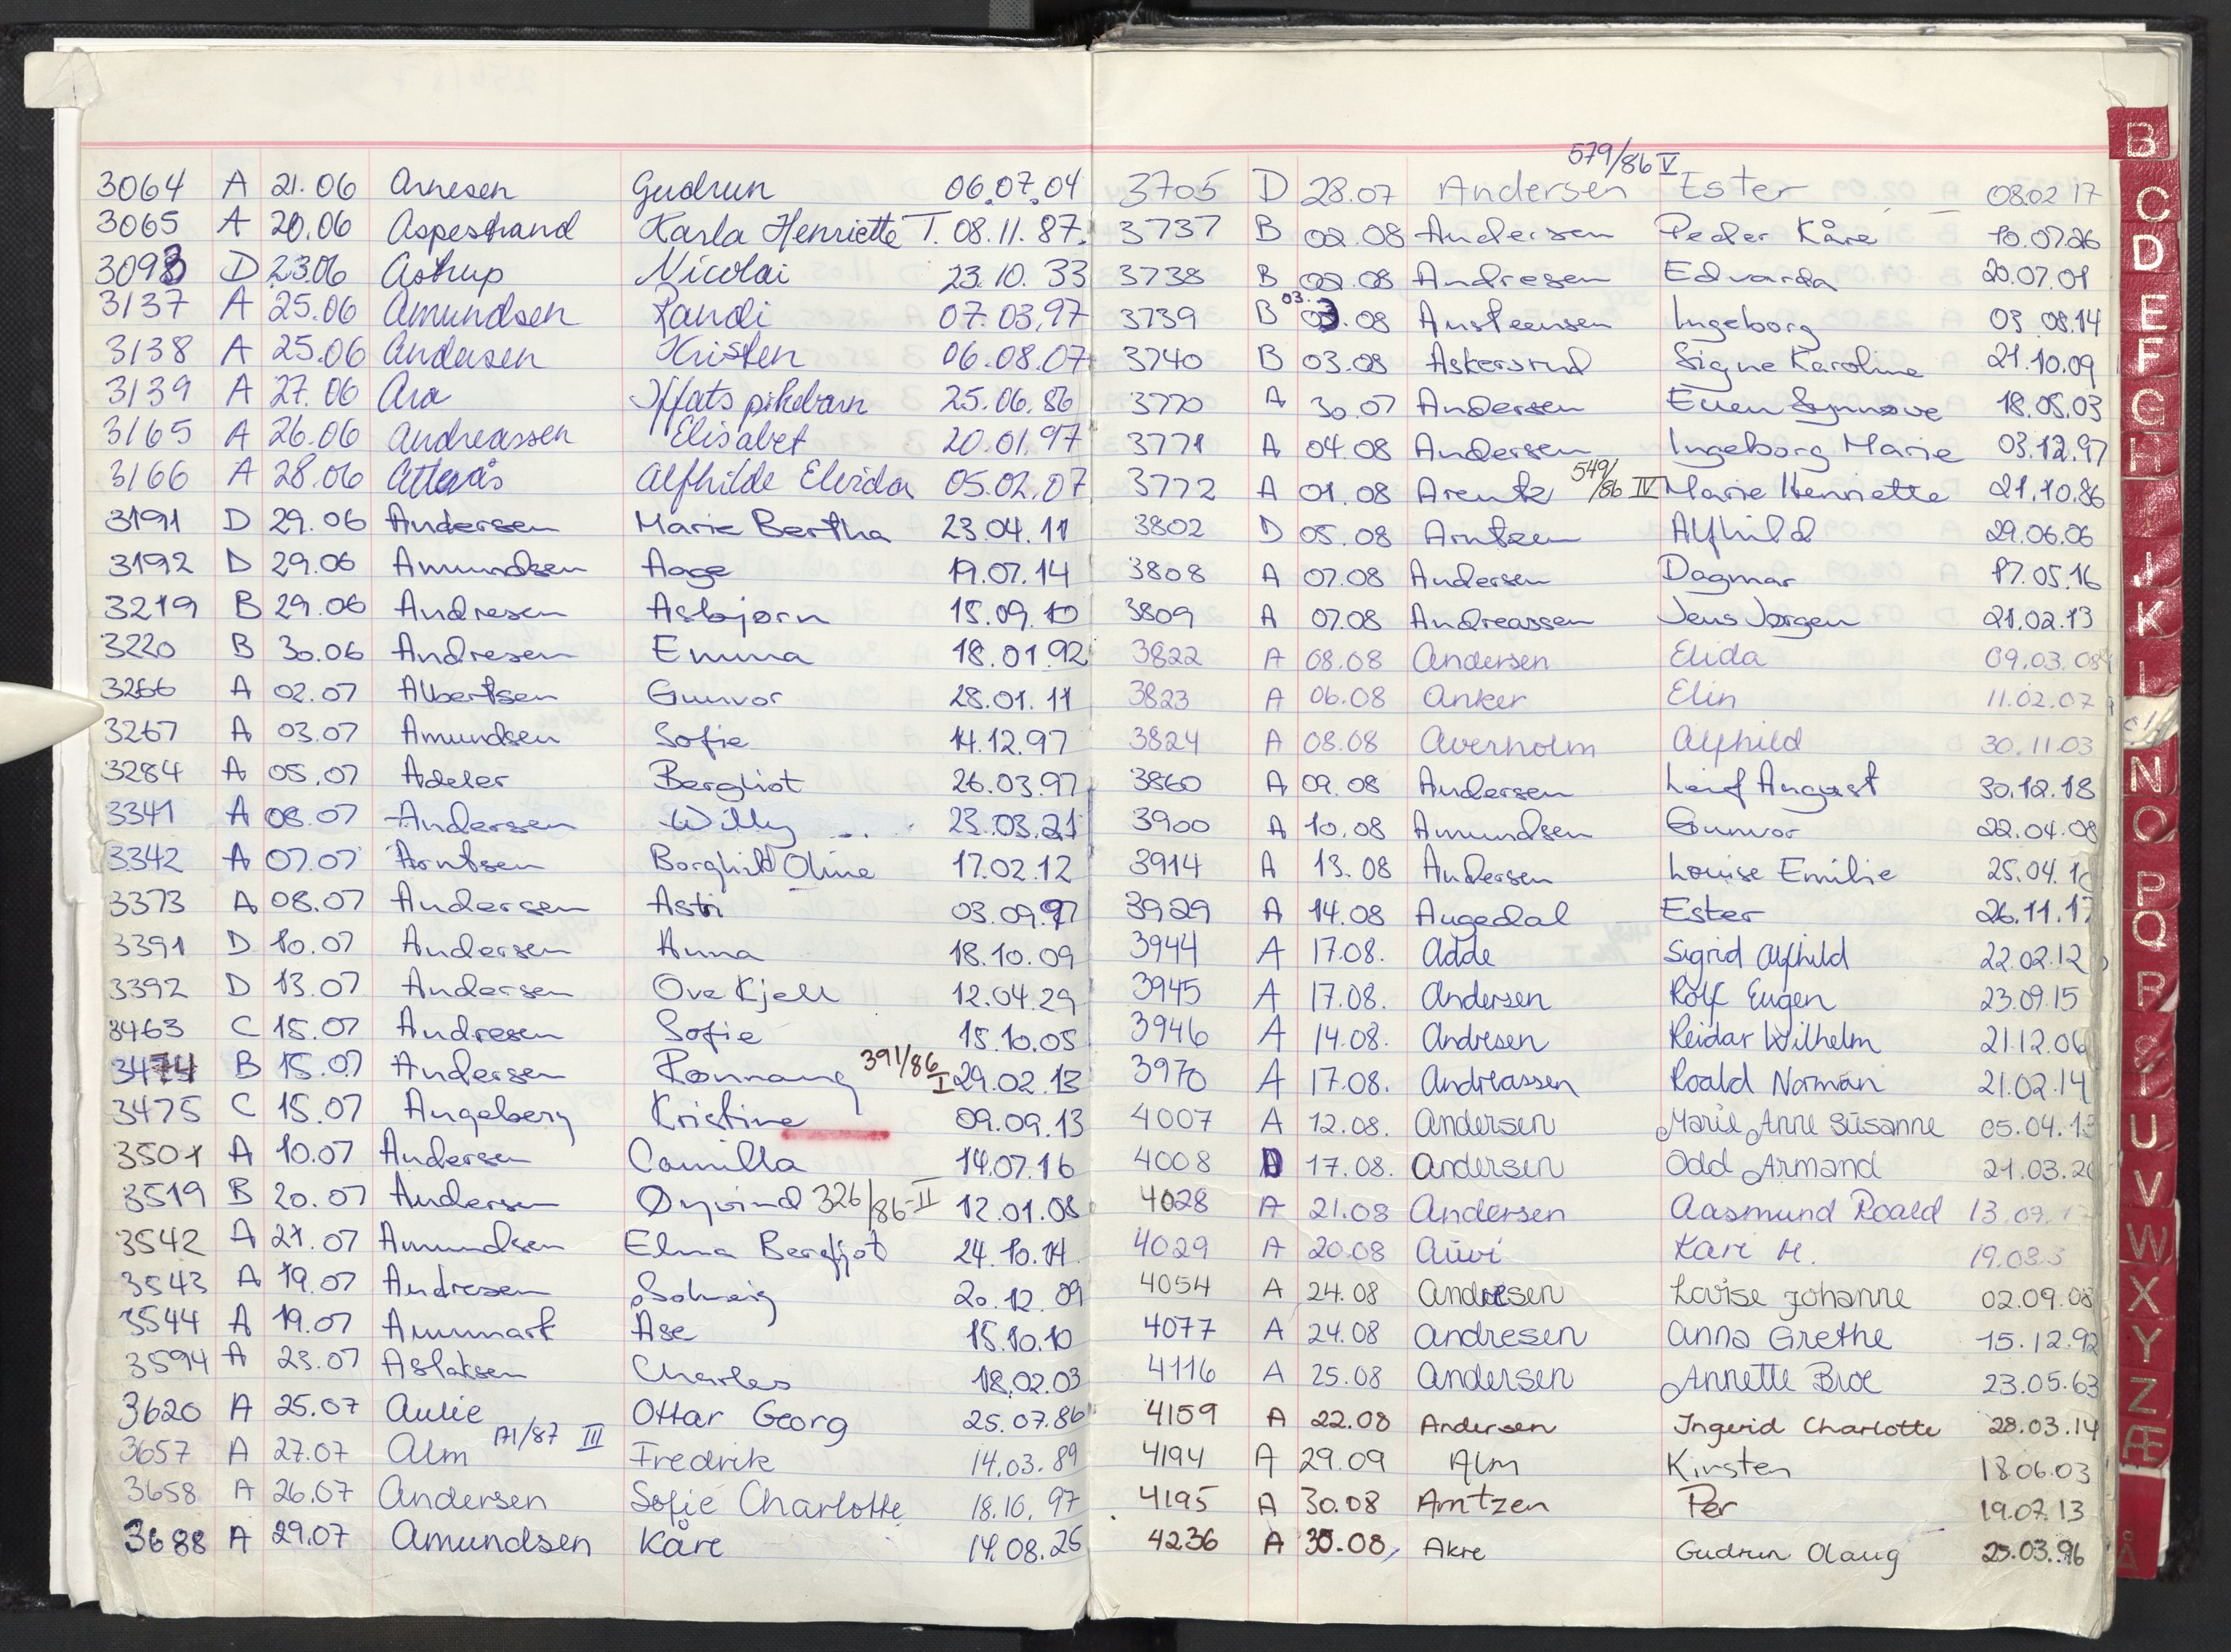 3064 A 21.06 Arnesen Gudrun 06.07.04
3065 A 20.06 Aspestrand Karla Henriette T. 08.11.87.
3093 D 23.06 Astrup Nicolai 23.10.33
3137 A 25.06 Amundsen Randi 07.03.97
3138 A 25.06 Andersen Kristen 06.08.07
3139 A 27.06 Ara Iffats pikebarn 25.06.86
3165 A 26.06 Andreassen Elisabet 20.01.97
3166 A 28.06 Alfhilde Elvida 05.02.07
3191 D 29.06 Andersen Marie Bertha 23.04.11
3192 D 29.06 Amundsen Aage 19.07.14
3219 B 29.06 Andresen Asbjørn 15.09.10
3220 B 30.06 Andresen Emma 18.01.92
3266 A 02.07 Albertsen Gunvor 28.01.11
3267 A 03.07 Amundsen Sofie 14.12.97
3284 A 05.07 Adeler Bergliot 26.03.97
3341 A 08.07 Andersen Willy 23.03.21
3342 A 07.07 Arntsen Borghild Oline 17.02.12
3373 A 08.07 Andersen Astri 03.09.97
3391 D 10.07 Andersen Anna 18.10.09
3392 D 13.07 Andersen Ove Kjell 12.04.29
3463 C 15.07 Andresen Sofie 15.10.05
3474 B 15.07 Andersen Rønnaug 391/86 I 29.02.13
3475 C 15.07 Angeberg Kristine 09.09.13
3501 A 10.07 Andersen Camilla 14.07.16
3519 B 20.07 Andersen Øyvind 326/86-II 12.01.08
3542 A 21.07 Amundsen Elma Bergljot 24.10.14
3543 A 19.07 Andresen Solveig 20.12.09
3544 A 19.07 Ammark Åse 15.10.10
3594 A 23.07 Aslaksen Charles 18.02.03
3620 A 25.07 Aulie Ottar Georg 25.07.86
3657 A 27.07 Alm 171/87 III Fredrik 14.03.89
3658 A 26.07 Andersen Sofie Charlotte 18.10.97
3688 A 29.07 Amundsen Kåre 14.08.26
579/86 V
3705 D 28.07 Andersen Ester 08.02 17
3737 B 02.08 Andersen Peder Kåre 10.07.26
3738 B 02.08 Andresen Edvarda 20.07.01
3739 B 03. 03.08 Austeensen Ingeborg 03 08.14
3740 B 03.08 Askersrud Signe Karoline 21.10.09
3770 A 30.07 Andersen Ellen Synnøve 18.05.03
3771 A 04.08 Andersen Ingeborg Marie 03.12.97
3772 A 01.08 Arentz 549/86 IV Marie Henriette 21.10.86
3802 D 05.08 Arntzen Alfhild 29.06.06
3808 A 07.08 Andersen Dagmar 17.05.16
3809 A 07.08 Andreassen Jens Jørgen 21.02.13
3822 A 08.08 Andersen Elida 09.03.08
3823 A 06.08 Anker Elin 11.02.07
3824 A 08.08 Averholm Alfhild 30.11.03
3860 A 09.08 Andersen Leif August 30.12.18
3900 A 10.08 Amundsen Gunvor 22.04.08
3914 A 13.08 Andersen Louise Emilie 25.04.1
3929 A 14.08 Augedal Ester 26.11.17
3944 A 17.08. Adde Sigrid Alfhild 22.02.12
3945 A 17.08. Andersen Rolf Eugen 23.09.15
3946 A 14.08. Andresen Reidar Wilhelm 21.12.06
3970 A 17.08. Andreassen Roald Norman 21.02.14
4007 A 12.08. Andersen Marie Anne Susanne 05.04.13
4008 D 17.08. Andersen Odd Armand 21.03.20
4028 A 21.08 Andersen Aasmund Roald 13.09.1
4029 A 20.08 Auvi Kari M. 19.03.3
4054 A 24.08 Andresen Lovise Johanne 02.09.08
4077 A 24.08 Andresen Anna Grethe 15.12.92
4116 A 25.08 Andersen Annette Broe 23.05.63
4159 A 22.08 Andersen Ingerid Charlotte 28.03.14
4194 A 29.09 Alm Kirsten 18.06.03
4195 A 30.08 Arntzen Per 19.07.13
4236 A 30.08 Akre Gudrun Olaug 25.03.96
B
C
D
E
F
G
H
J
K
L
N
O
P
Q
R
S
T
U
V
W
X
Y
Z
Æ
Å